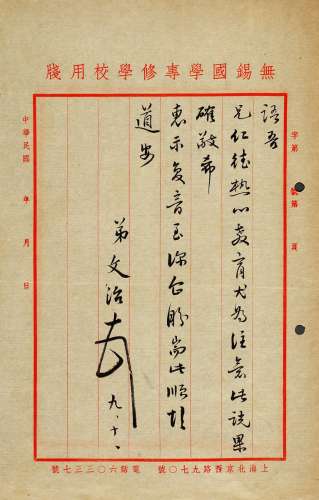 無錫國學專修學校用牋
字第 號第 頁
語吾
兄仁德熱心教育尤為注意此說果
確敬希
惠示复音至深企盼耑此順頌
道安
弟文治
九、十、
中華民國 年 月 日
上海北京西路九七〇號 電話六〇三三七號